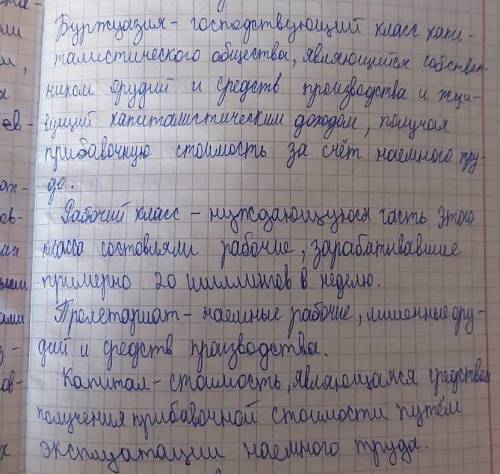 Буржуазия - господствующий класс капи-
талистического общества, являющийся собствен-
ником орудий и средств производства и жи-
вущий капиталистическим доходом, получая
прибавочную стоимость за счёт наемного тру-
да.
Рабочий класс - нуждающуюся часть этого
класса составляли рабочие, зарабатывавшие
примерно 20 шиллингов в неделю.
Пролетариат - наемные рабочие, лишенные ору-
дий и средств производства.
Капитал - стоимость, являющаяся средством
получения прибавочной стоимости путём
эксплуатации наемного труда.